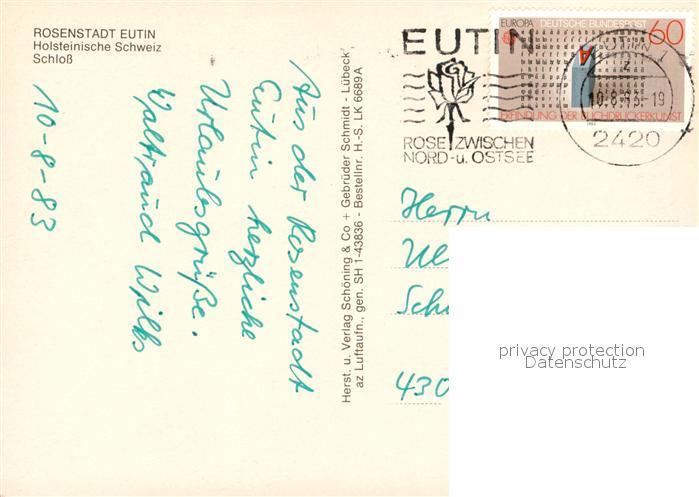 ROSENSTADT EUTIN
Holsteinische Schweiz
Schloß
10-8-83
Aus der Rosenstadt
Eutin herzliche
Urlaubsgrüße.
Waltraud Wilbs
Herst. u. Verlag Schöning & Co + Gebrüder Schmidt - Lübeck
az Luftaufn., gen. SH 1-43836 - Bestellnr. H.-S. LK 6689 A
EUTIN
ROSE ZWISCHEN
NORD- u. OSTSEE
EUROPA DEUTSCHE BUNDESPOST 60
A
ERFINDUNG DER BUCHDRUCKERKUNST
10.8.83-19
2420
Herrn
430
privacy protection
Datenschutz